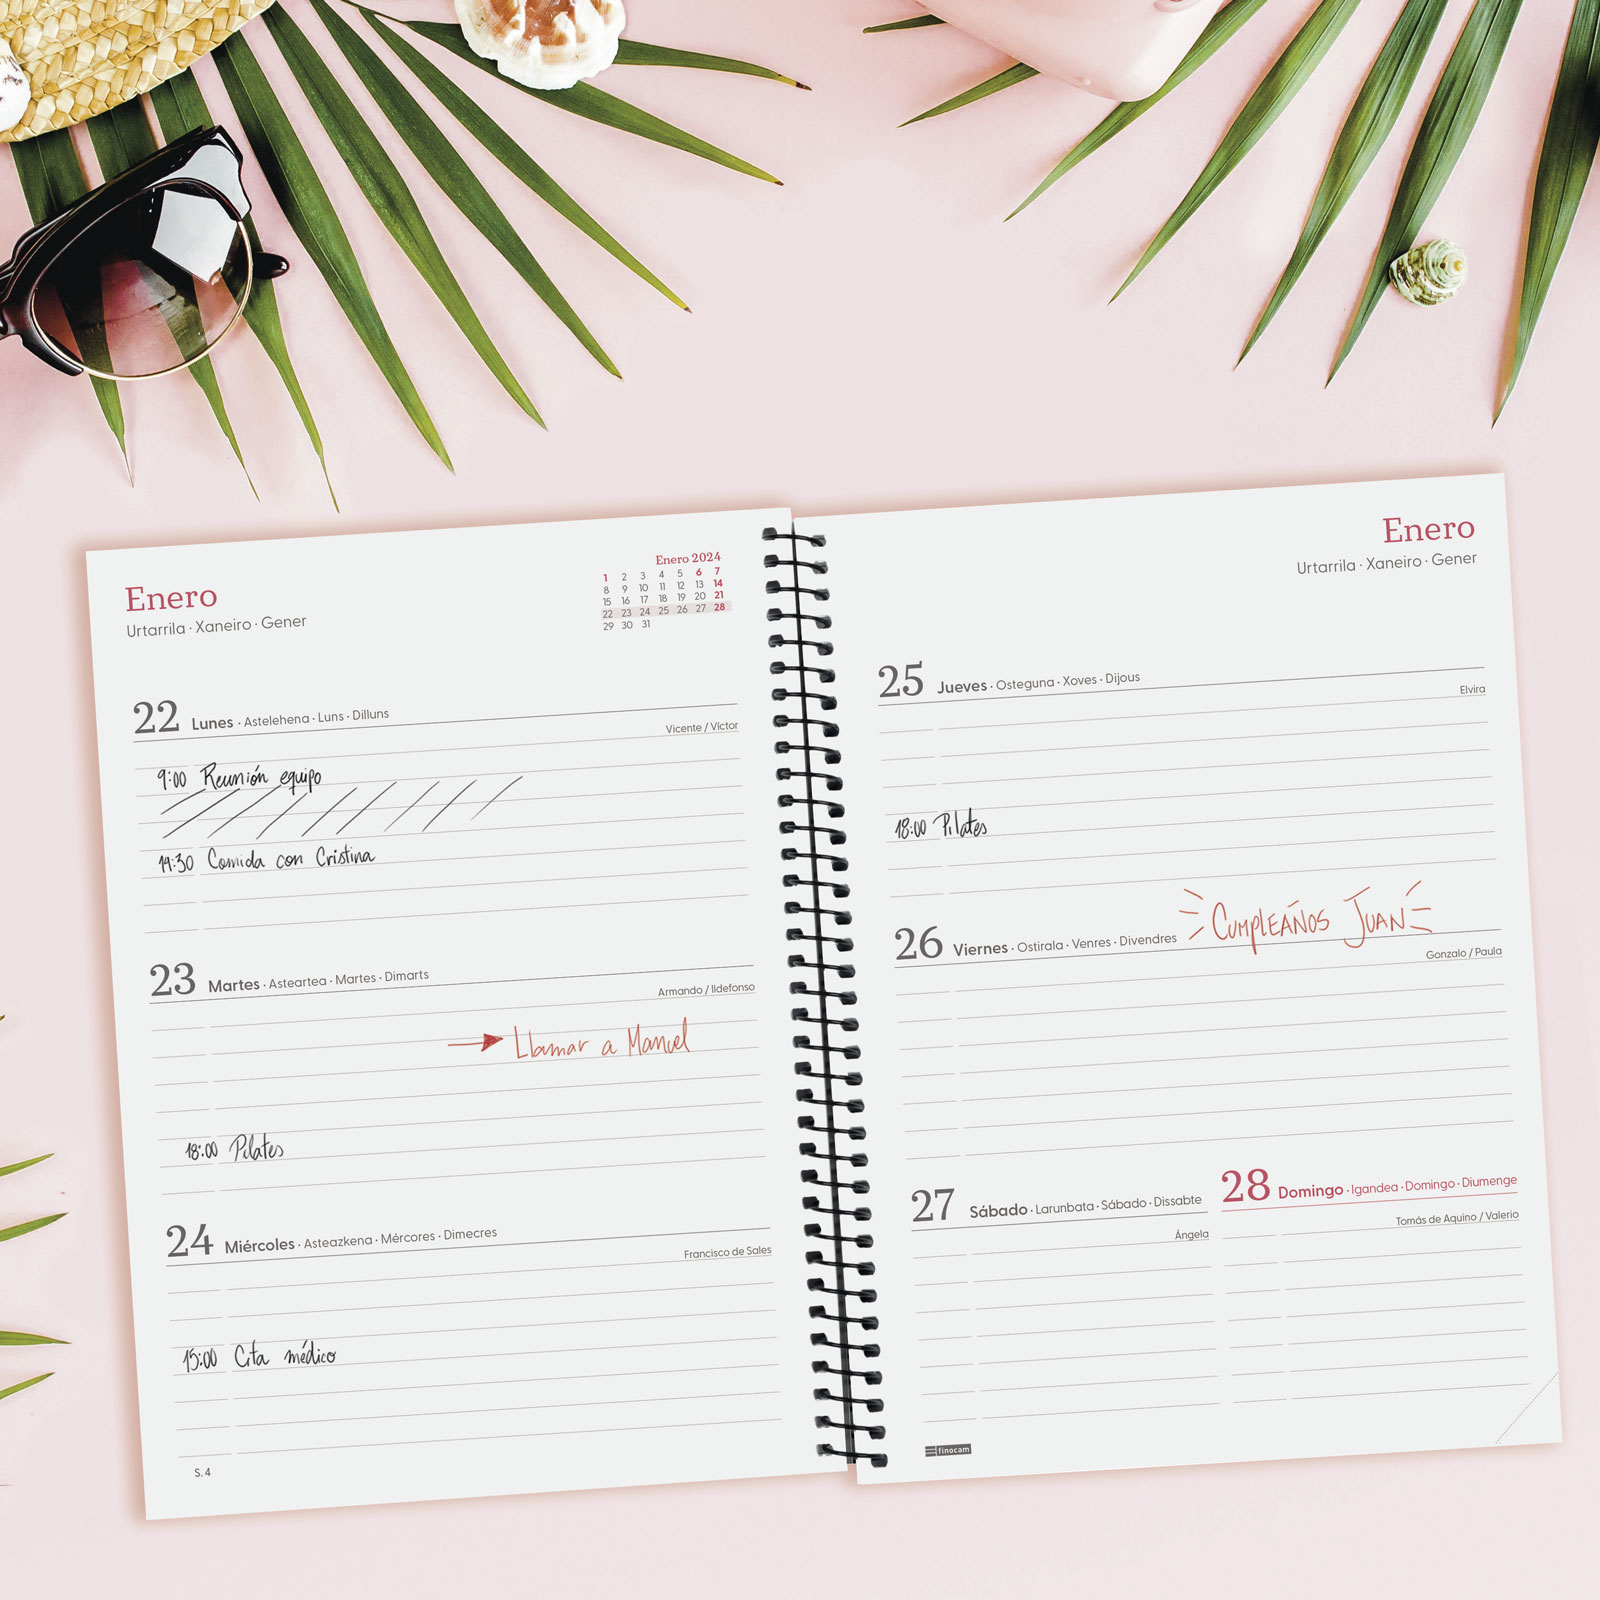 Enero
Urtarrila · Xaneiro · Gener
Enero 2024
1 2 3 4 5 6 7
8 9 10 11 12 13 14
15 16 17 18 19 20 21
22 23 24 25 26 27 28
29 30 31
22 Lunes · Astelehena · Luns · Dilluns
Vicente / Víctor
9:00 Reunión equipo
14:30 Comida con Cristina
23 Martes · Asteartea · Martes · Dimarts
Armando / Ildefonso
Llamar a Manuel
18:00 Pilates
24 Miércoles · Asteazkena · Mércores · Dimecres
Francisco de Sales
15:00 Cita médico
S. 4
Enero
Urtarrila · Xaneiro · Gener
25 Jueves · Osteguna · Xoves · Dijous
Elvira
18:00 Pilates
26 Viernes · Ostirala · Venres · Divendres
CUMPLEAÑOS JUAN
Gonzalo / Paula
27 Sábado · Larunbata · Sábado · Dissabte
Ángela
28 Domingo · Igandea · Domingo · Diumenge
Tomás de Aquino / Valerio
finocam